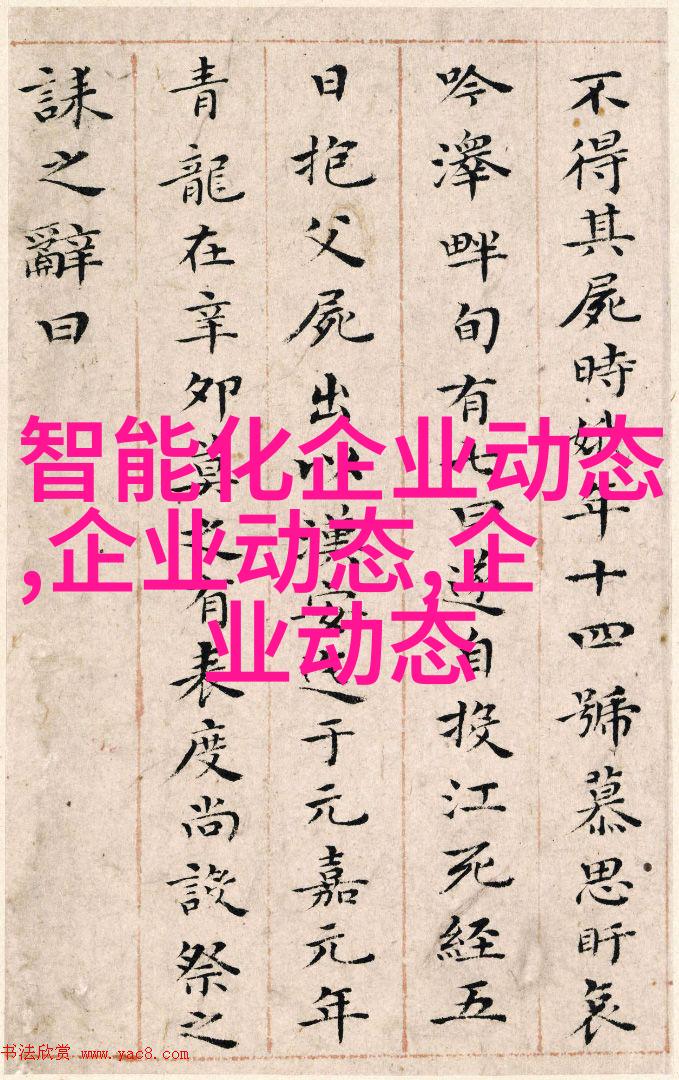 不得其屍時娥年十四號慕思盱哀
吟澤畔旬有七日遂自投江死經五
日抱父屍出以漢安迄于元嘉元年
青龍在辛夘莫之有表度尚設祭之
誄之辭曰
智能化企业动态
,企业动态,企
业动态
书法欣赏 www.yac8.com